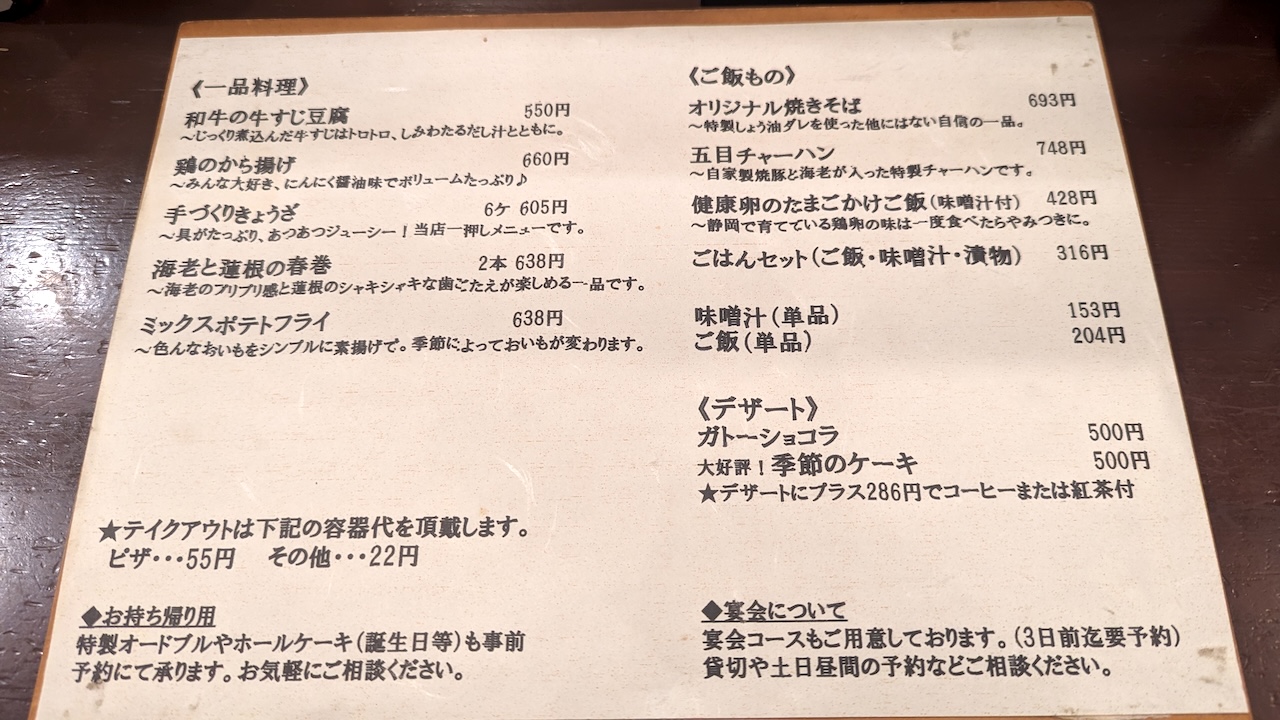 《一品料理》
和牛の牛すじ豆腐 550円
～じっくり煮込んだ牛すじはトロトロ、しみわたるだし汁とともに。
鶏のから揚げ 660円
～みんな大好き、にんにく醤油味でボリュームたっぷり♪
手づくりぎょうざ 6ケ 605円
～具がたっぷり、あつあつジューシー！当店一押しメニューです。
海老と蓮根の春巻 2本 638円
～海老のプリプリ感と蓮根のシャキシャキな歯ごたえが楽しめる一品です。
ミックスポテトフライ 638円
～色んなおいもをシンプルに素揚げで。季節によっておいもが変わります。
★テイクアウトは下記の容器代を頂戴します。
ピザ・・・55円 その他・・・22円
◆お持ち帰り用
特製オードブルやホールケーキ(誕生日等)も事前
予約にて承ります。お気軽にご相談ください。
《ご飯もの》
オリジナル焼きそば 693円
～特製しょう油ダレを使った他にはない自信の一品。
五目チャーハン 748円
～自家製焼豚と海老が入った特製チャーハンです。
健康卵のたまごかけご飯(味噌汁付) 428円
～静岡で育てている鶏卵の味は一度食べたらやみつきに。
ごはんセット(ご飯・味噌汁・漬物) 316円
味噌汁(単品) 153円
ご飯(単品) 204円
《デザート》
ガトーショコラ 500円
大好評！季節のケーキ 500円
★デザートにプラス286円でコーヒーまたは紅茶付
◆宴会について
宴会コースもご用意しております。(3日前迄要予約)
貸切や土日昼間の予約などご相談ください。